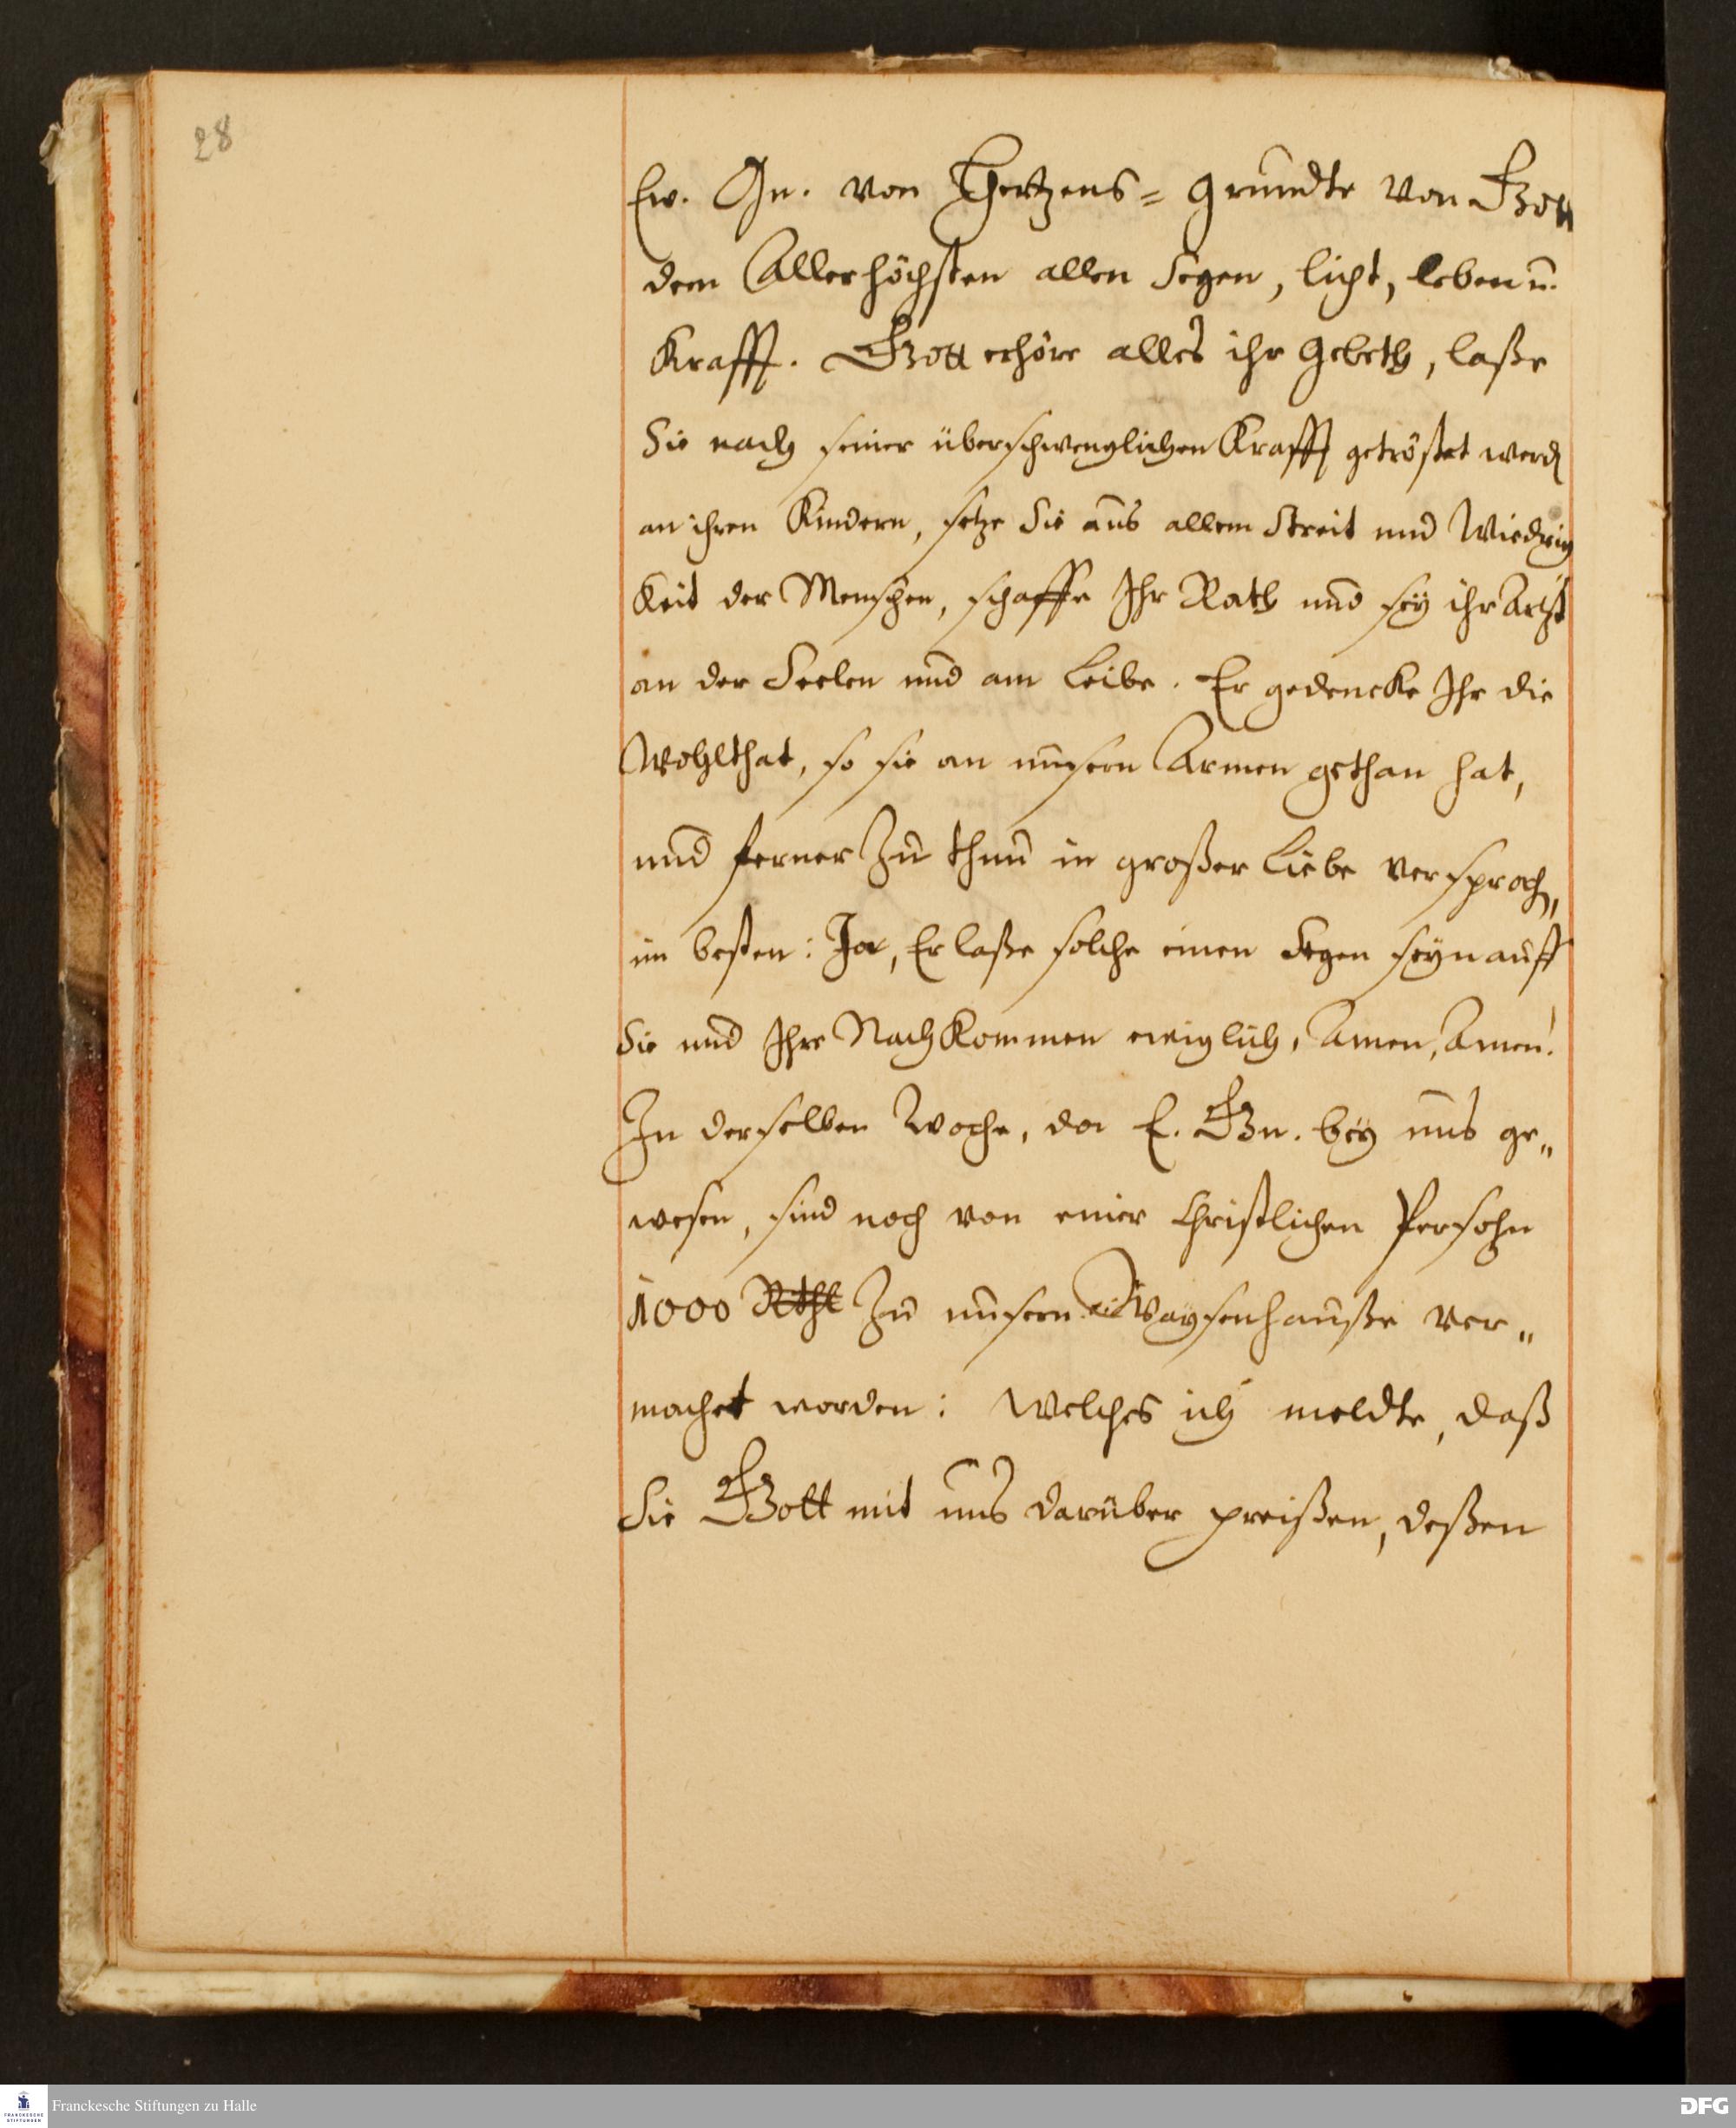 28
Ew. Gn. von Hertzens= grundte von Gott
dem Allerhöchsten allen Segen, licht, leben u.
Krafft. Gott erhöre alles ihr Gebeth, laße
Sie nach seiner überschwenglichen Krafft getröstet werd
an ihren Kindern, setze Sie aus allem Streit und Wiedrig
Keit der Menschen, schaffe Ihr Rath und sey ihr Artzt
an der Seelen und am Leibe. Er gedencke Ihr die
Wohlthat, so sie an unsern Armen gethan hat,
und ferner zu thun in großer Liebe versproch,
im besten: Ja, Er laße solche einen Segen seyn auff
Sie und Ihre NachKommen ewiglich, Amen, Amen!
In derselben Woche, da E. Gn. bey uns ge„
wesen, sind noch von einer Christlichen Persohn
1000 Rthl zu unsern Waysenhauße ver„
machet worden: Welches ich meldte, daß
Sie Gott mit uns darüber preißen, deßen
Franckesche Stiftungen zu Halle
FRANCKESCHE
STIFTUNGEN
DFG